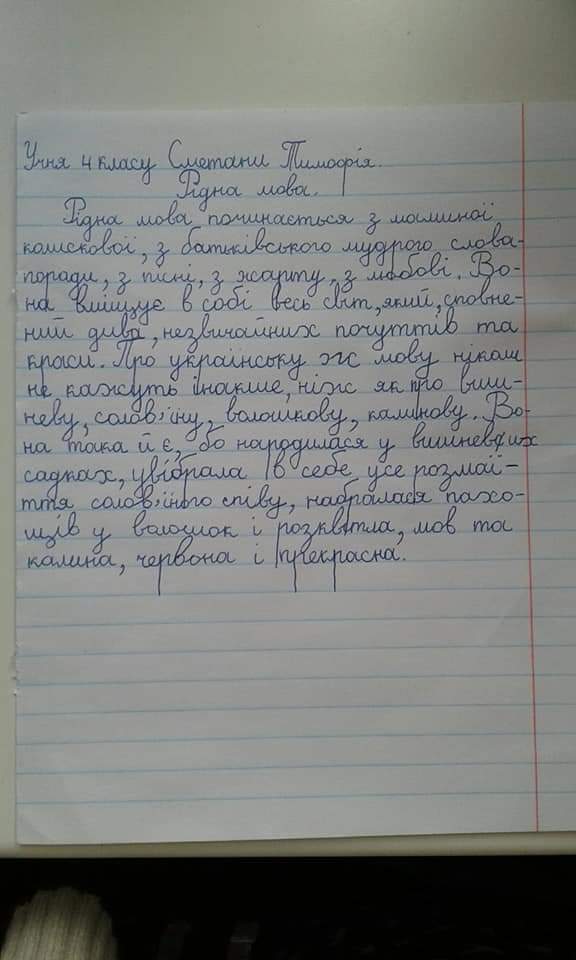 Учня 4 класу Сметани Тимофія.
Рідна мова.
Рідна мова починається з маминої
колискової, з батьківського мудрого слова-
поради, з пісні, з жарту, з любові. Во-
на вміщує в собі весь світ, який, сповне-
ний дива, незвичайних почуттів та
краси. Про українську ж мову ніколи
не кажуть інакше, ніж як про виш-
неву, солов'їну, волошкову, калинову. Во-
на така й є, бо народилася у вишневих
садках, увібрала в себе усе розмаї-
ття солов'їного співу, набралася пахо-
щів у волошок і розквітла, мов та
калина, червона і прекрасна.